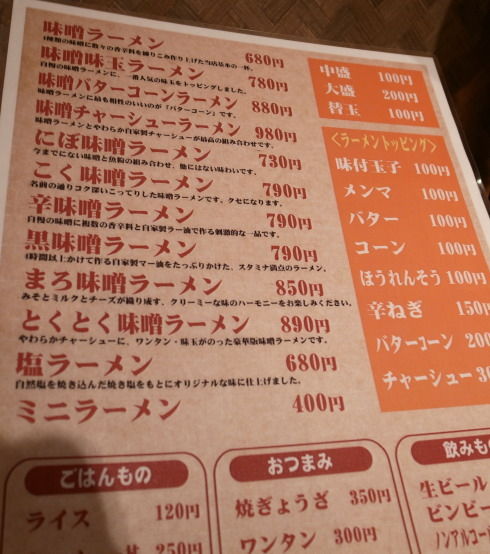 味噌ラーメン 680円
4種類の味噌に数々の香辛料を練りこみ作り上げた当店基本の一杯。
味噌味玉ラーメン 780円
自慢の味噌ラーメンに、一番人気の味玉をトッピングしました。
味噌バターコーンラーメン 880円
味噌ラーメンに最も相性のいいのが「バターコーン」です。
味噌チャーシューラーメン 980円
味噌ラーメンとやわらか自家製チャーシューが最高の組み合わせです。
にぼ味噌ラーメン 730円
今までにない味噌と魚粉の組み合わせ、他にはない味わいです。
こく味噌ラーメン 790円
名前の通りコク深いこってりした味噌ラーメンです。クセになります。
辛味噌ラーメン 790円
自慢の味噌に複数の香辛料と自家製ラー油で作る刺激的な一品です。
黒味噌ラーメン 790円
4時間以上かけて作る自家製マー油をたっぷりかけた、スタミナ満点のラーメン。
まろ味噌ラーメン 850円
みそとミルクとチーズが織り成す、クリーミーな味のハーモニーをお楽しみください。
とくとく味噌ラーメン 890円
やわらかチャーシューに、ワンタン・味玉がのった豪華版味噌ラーメンです。
塩ラーメン 680円
自然塩を焼き込んだ焼き塩をもとにオリジナルな味に仕上げました。
ミニラーメン 400円
中盛 100円
大盛 200円
替玉 100円
<ラーメントッピング>
味付玉子 100円
メンマ 100円
バター 100円
コーン 100円
ほうれんそう 100円
辛ねぎ 150円
バターコーン 200
チャーシュー 30
ごはんもの
ライス 120円
丼 250円
おつまみ
焼ぎょうざ 350円
ワンタン 300円
飲みもの
生ビール
ビンビー
ノンアルコー